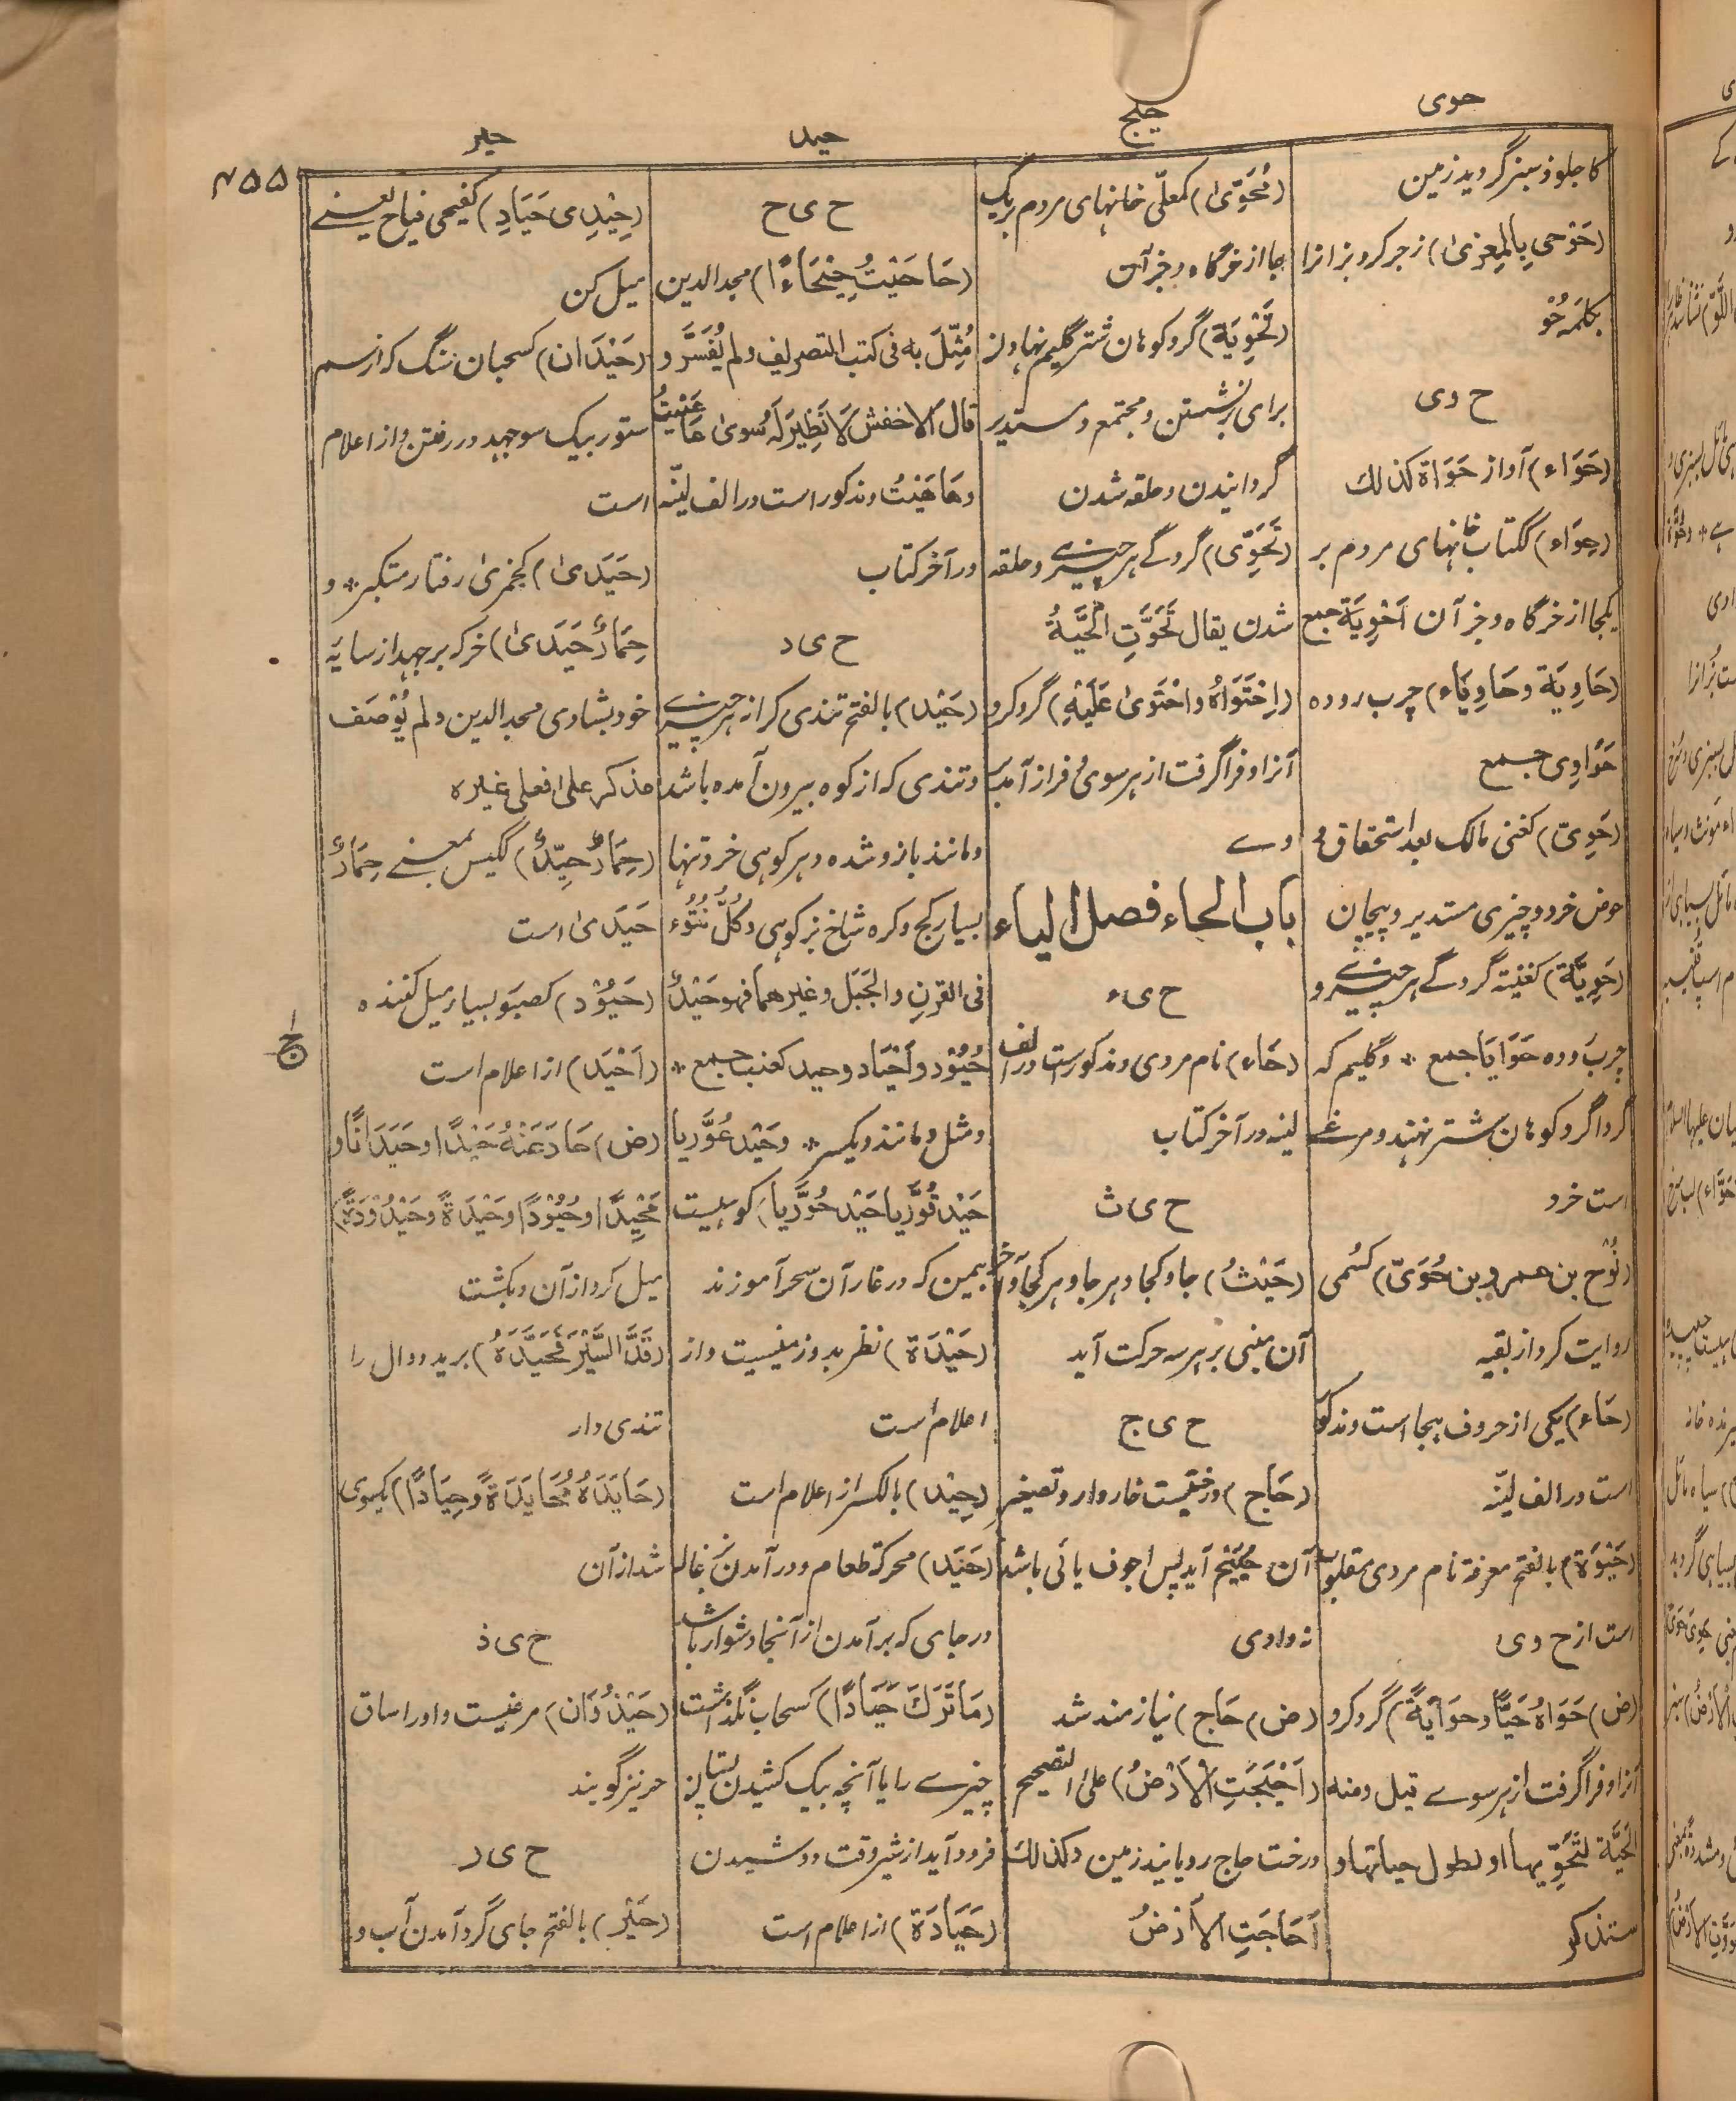 حوی
حیج
حید
حیر
۴۵۵
کاجلوذ سبز گردید زمین
(حَوْحی بِالمِعزیٰ) زجر کرد بز انرا
بکلمه حُوْ
ح وی
(حَوَاء) آواز حَوَاة کذلک
(حِوَاء) ککتاب خانهای مردم بر
یکجا از خرگاه وجز آن اَحْوِیَة جمع
(حَاوِیَة وحَاوِیَاء) چرب روده
حَوَاوِی جمع
(حَوِیّ) کغنی مالک بعد استحقاق و
حوض خرد و چیزی مستدیر و پیچان
(حَوِیَّة) کغنیة گردگے هر چیزے و
چرب روده حَوَایَا جمع * و گلیم که
گرداگرد کوهان شتر نهند و مرغے
است خرد
(نُوْح بن عمرو بن حُوَیّ) کسُمی
روایت کرد از بقیه
(حَاء) یکی از حروف هجا است و مذکور
است در الف لیّنه
(حَیْوَة) بالفتح معرفة نام مردی مقلوب
است از ح وی
(ض) حَوَاهُ حَیًّا وحَوَایَةً) گرد کرد
آنرا و فراگرفت از هر سوے قیل ومنه
الحَیَّة لِتَحَوِّیها او لطول حیاتها و
ستذکر
(مُحَوّیٰ) کمعلّی خانهای مردم بر یک
جا از خرگاه وجز آن
(تَحْوِیَة) گرد کوهان شتر گلیم نهادن
برای برنشستن و مجتمع و مستدیر
گردانیدن و حلقه شدن
(تَحَوّی) گردگے هر چیزے و حلقه
شدن یقال تَحَوَّتِ الحَیَّةُ
(اِحْتَوَاهُ واحْتَویٰ عَلَیْهِ) گرد کرد
آنرا و فراگرفت از هر سوی و فراز آمد بر
وے
باب الحاء فصل الیاء
ح ی ء
(حَاء) نام مردی و مذکورست در الف
لینه در آخر کتاب
ح ی ث
(حَیْثُ) جا و کجا و هر جا و هر کجا و آخر
آن مبنی بر هر سه حرکت آید
ح ی ج
(حَاج) درختیست خاردار و تصغیر
آن حُیَیْج آید پس اجوف یائی باشد
نه واوی
(ض) حَاج) نیازمند شد
(اَحْیَجَتِ الاَرْضُ) علی التصحیح
درخت حاج رویانید زمین وکذلک
اَحَاجَتِ الاَرْضُ
ح ی ح
(حَاحَیْتُ حِیْحَاءً) مجد الدین
مُثِّلَ به فی کتب التصریف ولم یُفَسَّر و
قال الاخفش لا نَظِیْرَ لَهُ سِویٰ عَاعَیْتُ
وهَاهَیْتُ و مذکور است در الف لیّنه
در آخر کتاب
ح ی د
(حَیْد) بالفتح تندی کرانه هر چیزے
و تندی که از کوه بیرون آمده باشد
و مانند بازو شده و بز کوهی خرد تنها
بسیار کج و گره شاخ بز کوهی وکُلّ نُتُوْء
فی القرن والجَبَل وغیرهما فهو حَیْدٌ
حُیُوْد واَحْیَاد وحید کعنب جمع *
و مثل و مانند و یکسر * وحَیْد عُوَّر یا
حَیْد قُوَّر یا حَیْد حُوَّر یا) کوهیست
بیمن که در غار آن سحر آموزند
(حَیْدَة) نظر بد و زمینیست و از
اعلام است
(حِیْد) بالکسر از اعلام است
(حَیَد) محرکة طعام و درآمدن بزغاله
در جای که برآمدن از آنجا دشوار باشد
(مَا تَرَكَ حَیَادًا) کسحاب نگذاشت
چیزے را یا آنچه بیک کشیدن پستان
فرود آید از شیر وقت دوشیدن
(حَیَادَة) از اعلام است
(حِیْدِی حَیَادِ) کفیحی فیاح یعنے
میل کن
(حَیْدَان) کسحبان سنگ که از سم
ستور بیک سو جهد در رفتن و از اعلام
است
(حَیَدیٰ) کجمزیٰ رفتار متکبر * و
حِمَارٌ حَیَدیٰ) خر که بر جهد از سایه
خود بشادی مجد الدین ولم یُوْصَف
مذکر علی فعلی غیره
(حِمَارٌ حَیِّدٌ) ککیس بمعنے حِمَارٌ
حَیَدیٰ است
(حَیُوْد) کصبور بسیار میل کننده
(اَحْیَد) از اعلام است
(ض) حَادَ عَنْهُ حَیْدًا وحَیَدَانًا و
مَحِیْدًا وحُیُوْدًا وحَیْدَةً وحَیْدُوْدَةً)
میل کرد از آن و بگشت
(قَدَّ السَّیْرَ فَحَیَّدَهُ) برید دوال را
تندی دار
(حَایَدَهُ مُحَایَدَةً وحِیَادًا) یکسوی
شد از آن
ح ی ذ
(حَیْذُوَان) مرغیست و او را ساق
حر نیز گویند
ح ی ر
(حَیْر) بالفتح جای گرد آمدن آب و
ج